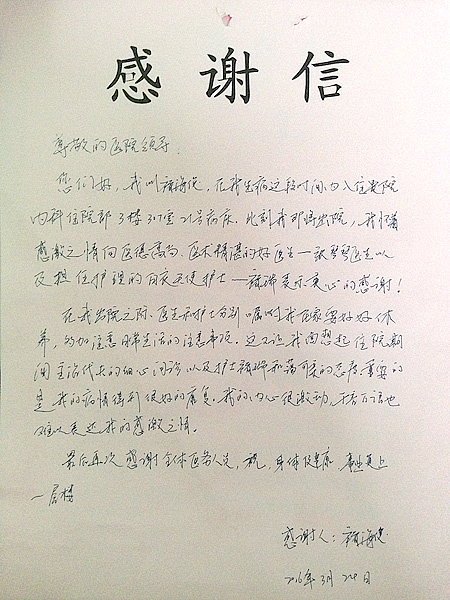 感谢信
尊敬的医院领导:
您们好,我叫 在我生病这段时间内入住贵院
内科住院部3楼 室 号病床。此刻我即将出院,我怀着
感激之情向医德高尚、医术精湛的好医生 医生以
及担任护理的白衣天使护士 表示衷心的感谢!
在我出院之际,医生和护士分别嘱咐我在家要好好休
养,多加注意日常生活的注意事项。这又让我回想起住院期
间主治 的细心问诊以及护士 和蔼可亲的态度,重要的
是我的病情得到很好的康复。我的内心很激动,千言万语也
难以表达我的感激之情。
最后再次感谢全体医务人员,祝,身体健康 事业更上
一层楼
感谢人:
2016年3月 日